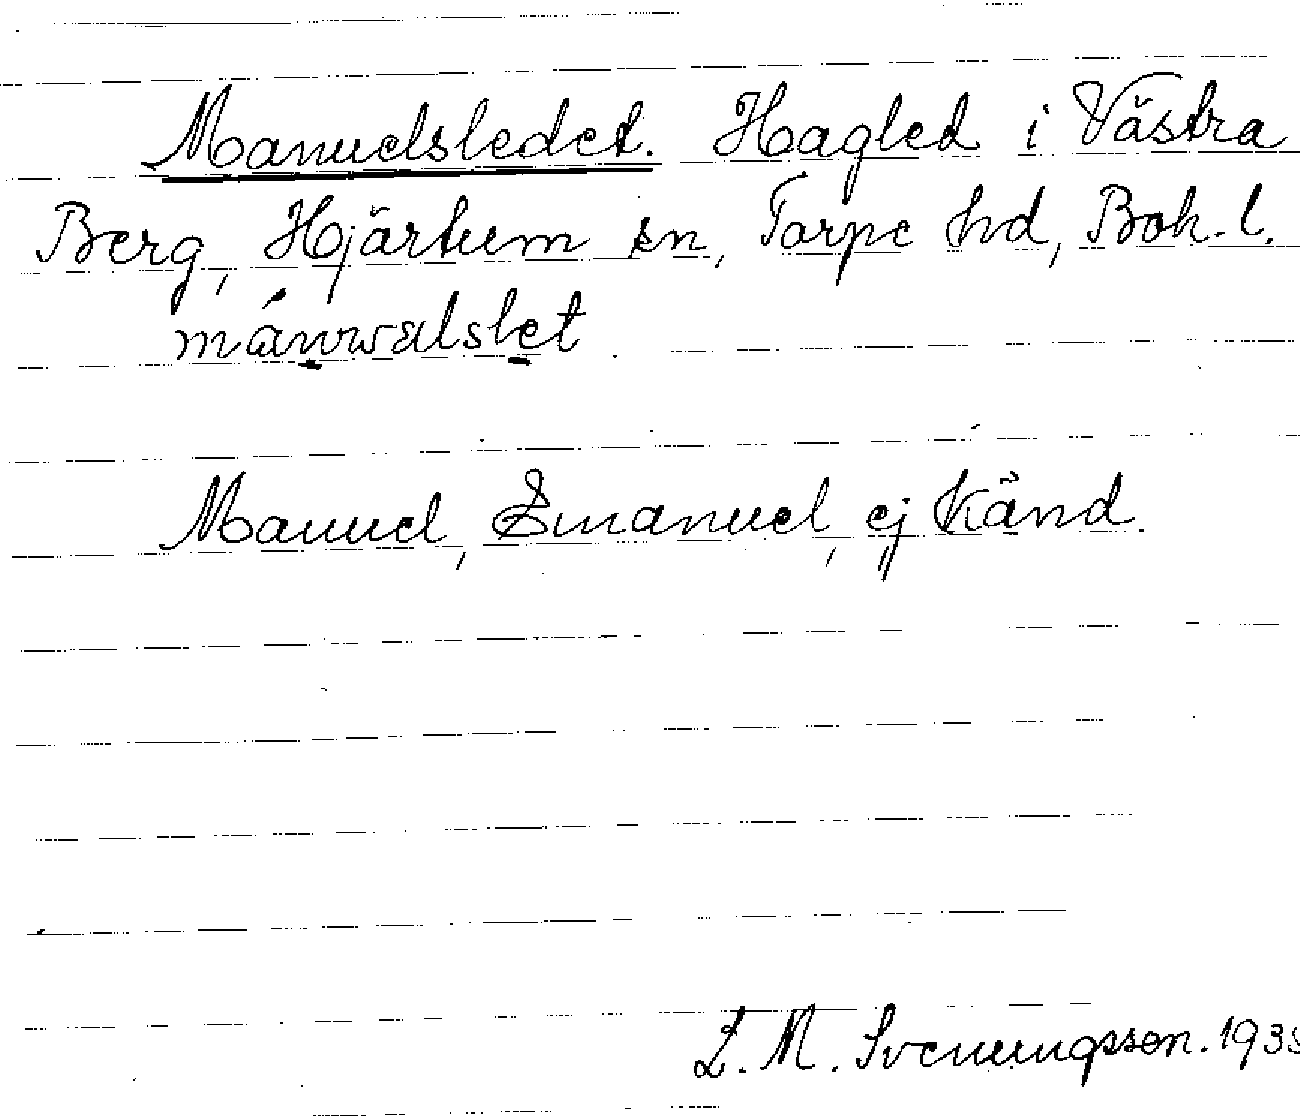 Manuelsledet. Hagled i Västra
Berg, Hjärtum sn, Torpe hd, Boh. l.
Manuel, Emanuel, ej känd.
L. M. Svenungsson. 193